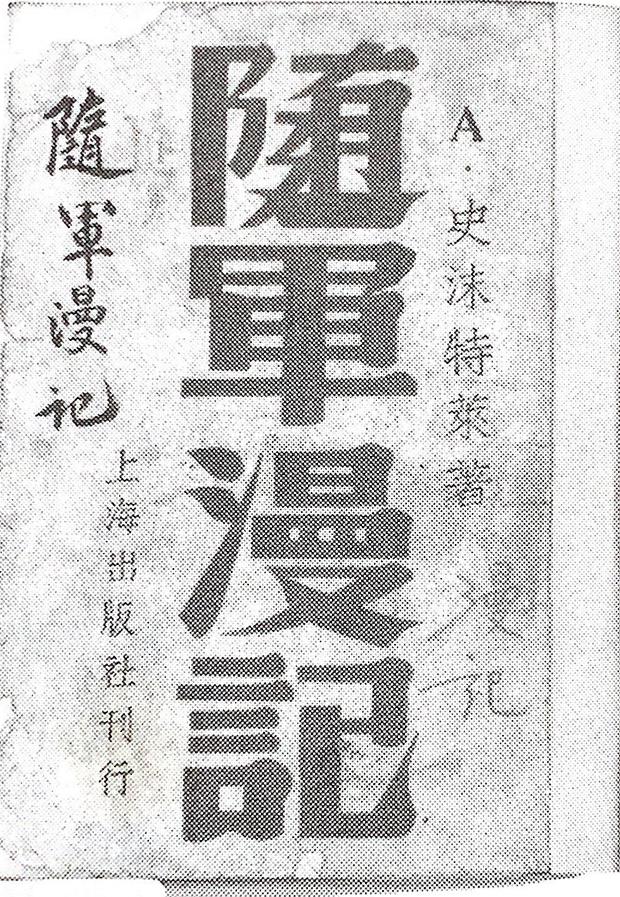 A·史沫特萊著
随軍漫記
上海出版社刊行
隨軍漫记